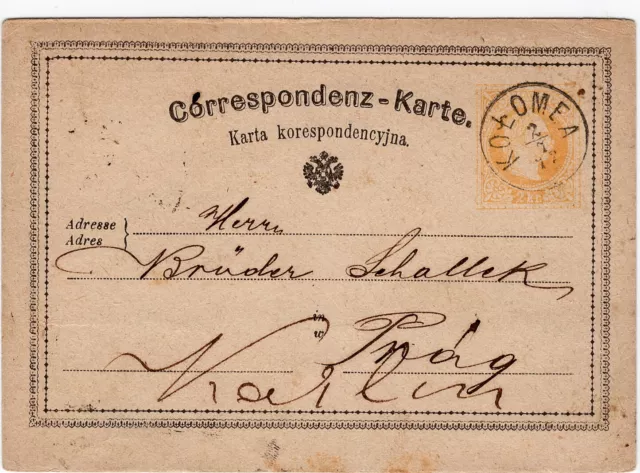 Correspondenz-Karte.
Karta korespondencyjna.
KOŁOMEA
2 kr
Adresse
Adres
Herrn
Brüder Schallek
in
w
Prag
Karlin